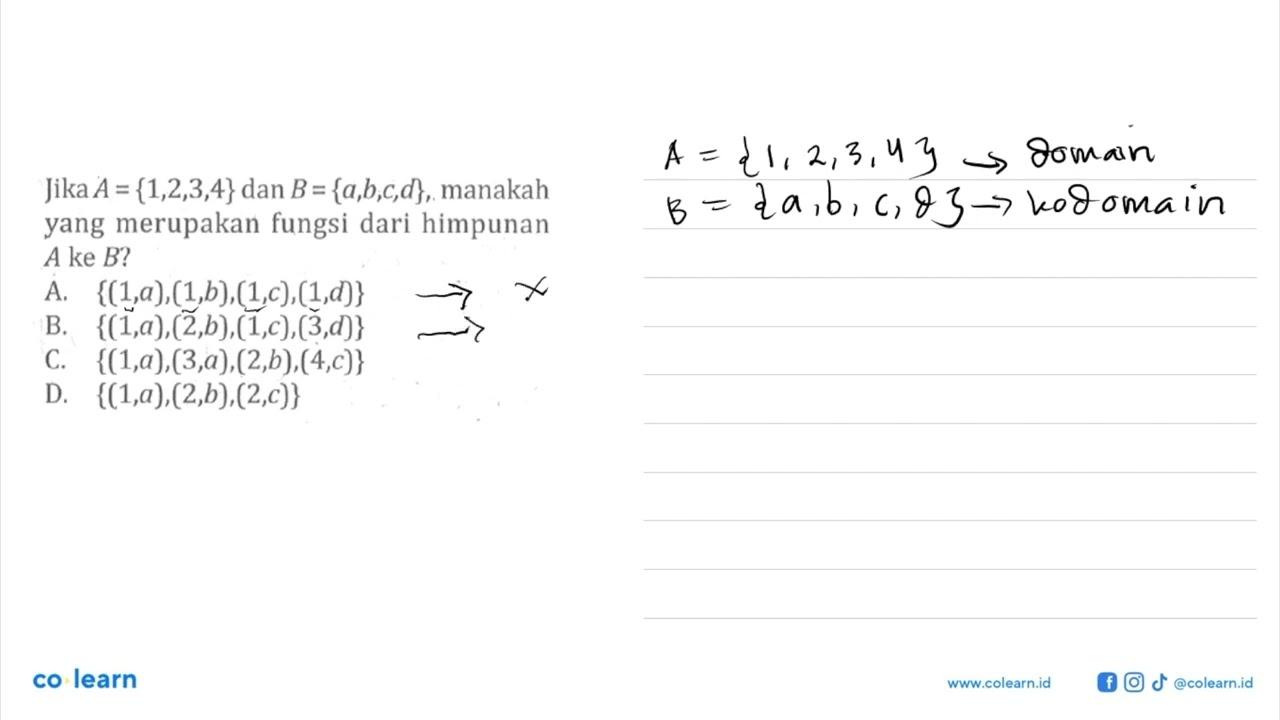 Jika A = {1,2,3,4} dan B = {a,b,c,d}, manakah
yang merupakan fungsi dari himpunan
A ke B?
A. {(1,a),(1,b),(1,c),(1,d)} → ×
B. {(1,a),(2,b),(1,c),(3,d)} →
C. {(1,a),(3,a),(2,b),(4,c)}
D. {(1,a),(2,b),(2,c)}
A = {1, 2, 3, 4} → domain
B = {a, b, c, d} → kodomain
co learn
www.colearn.id
@colearn.id